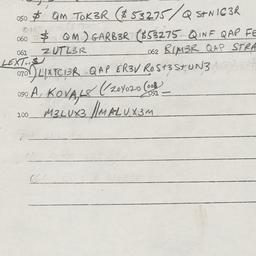 050 $ QM TOK3R ($ 53275 / Q S+N1G3R
060 $ QM) GARB3R ($53275 QINF QAP FE
061 ZUTL3R 062 R1M3R QAP STRA
LEXT..$
070 )L1XTC13R QAP ER3V R0S+3S+UN3
090 A. KOVA,L8 (/20Y020 (008
092
100 M3LUX3 //MALUX3M